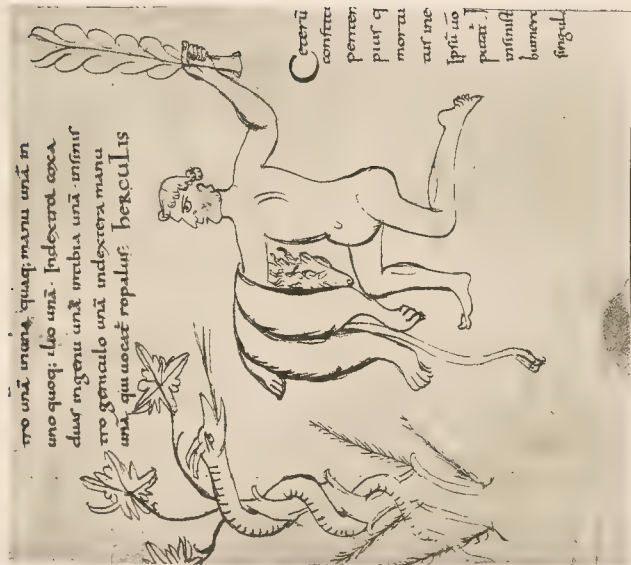 tro unā inuna quaq; manu unā in
uno quoq; ilio unā. Indextra coxa
duas ingenu unā intibia unā. insinis
tro geniculo unā indextera manu
unā qui uocat̄ ropalus; herculis
Ceterū
pius q
mortu
Ipsū uo
putat.
insinist
humero
singul